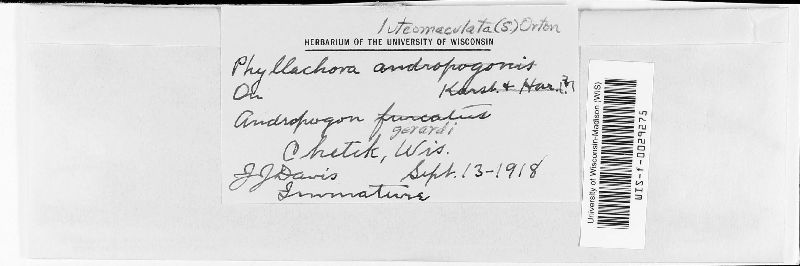 luteomaculata (S.) Orton
HERBARIUM OF THE UNIVERSITY OF WISCONSIN
Phyllachora andropogonis
On Karst. & Har.
Andropogon furcatus
gerardi
Chetek, Wis.
JJDavis Sept. 13-1918
Immature
University of Wisconsin-Madison (WIS)
WIS-f-0029275